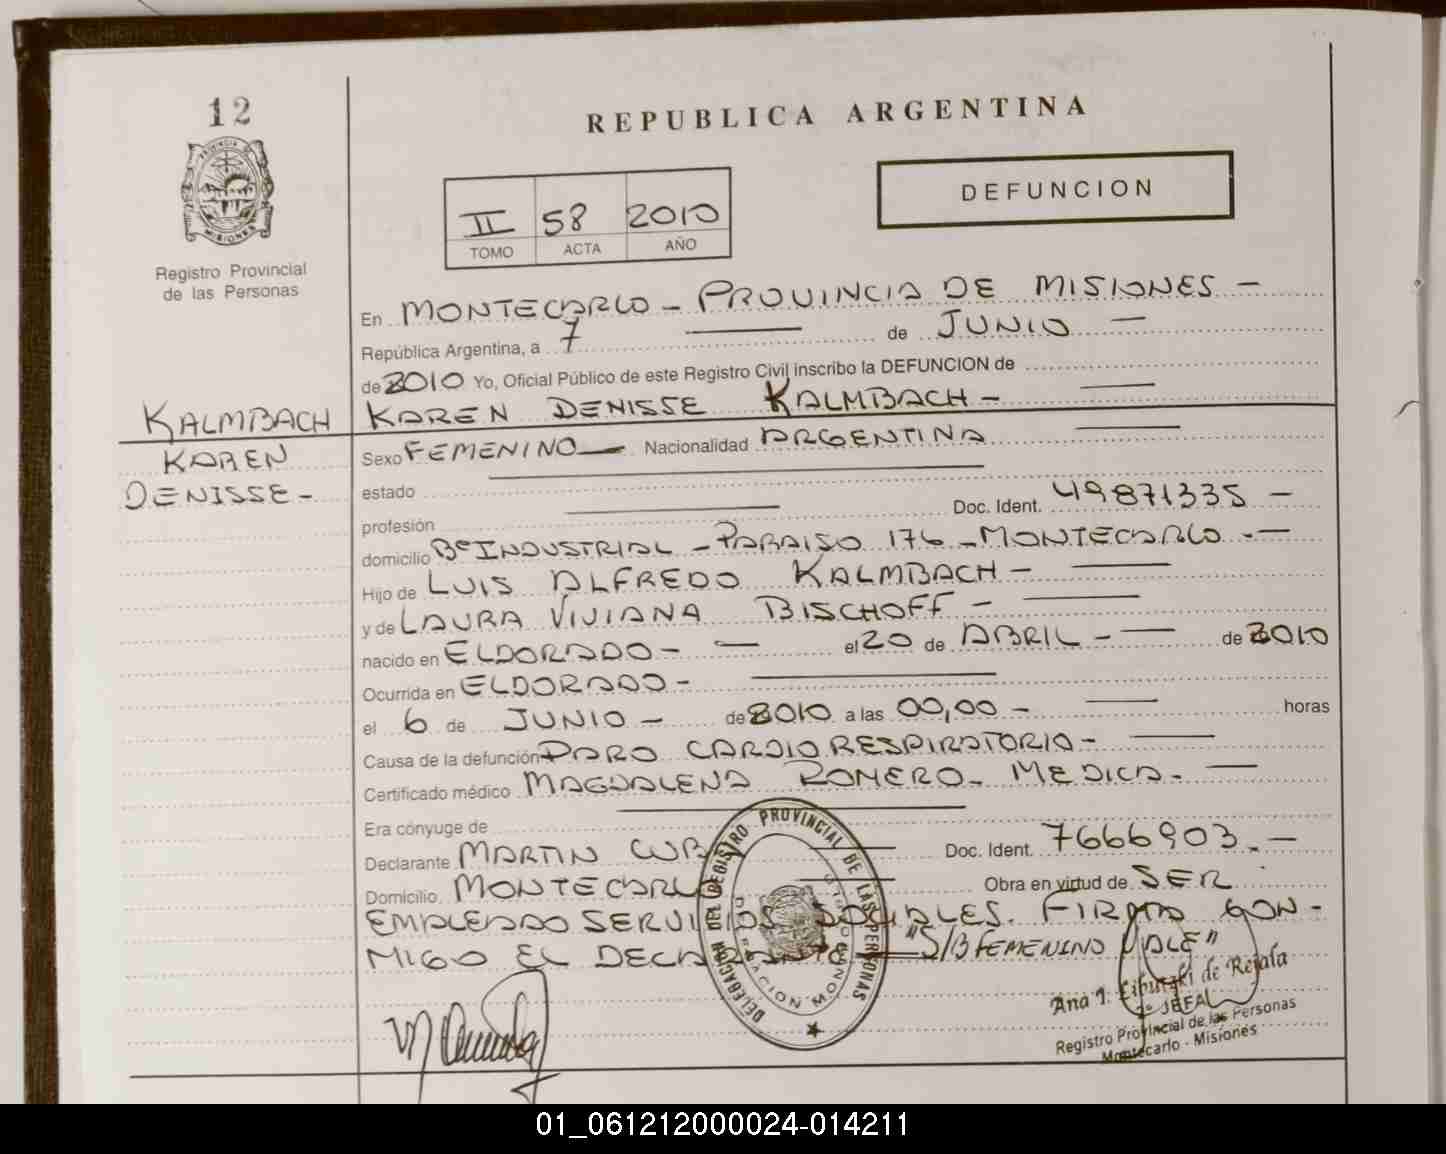 12
PROVINCIA DE
MISIONES
Registro Provincial
de las Personas
REPUBLICA ARGENTINA
II 58 2010
TOMO ACTA AÑO
DEFUNCION
En MONTECARLO - PROVINCIA DE MISIONES -
República Argentina, a 7 de JUNIO -
de 2010 Yo, Oficial Público de este Registro Civil inscribo la DEFUNCION de
KAREN DENISSE KALMBACH -
KALMBACH
KAREN
DENISSE -
Sexo FEMENINO - Nacionalidad ARGENTINA
estado
profesión Doc. Ident. 49871335 -
domicilio Bº INDUSTRIAL - PARAISO 176 - MONTECARLO -
Hijo de LUIS ALFREDO KALMBACH -
y de LAURA VIVIANA BISCHOFF -
nacido en ELDORADO - el 20 de ABRIL - de 2010
Ocurrida en ELDORADO -
el 6 de JUNIO - de 2010 a las 00,00 - horas
Causa de la defunción PARO CARDIORESPIRATORIO -
Certificado médico MAGDALENA ROMERO - MEDICA -
Era cónyuge de
Declarante MARTIN Doc. Ident. 7666903 -
Domicilio MONTECARLO Obra en virtud de SER
EMPLEADO SERVICIOS SOCIALES. FIRMA CON-
MIGO EL DECLARANTE "S/B FEMENINO VALE"
DELEGACION DEL REGISTRO PROVINCIAL DE LAS PERSONAS
Ana I. de Rejala
2º JEFA
Registro Provincial de las Personas
Montecarlo - Misiones
01_061212000024-014211